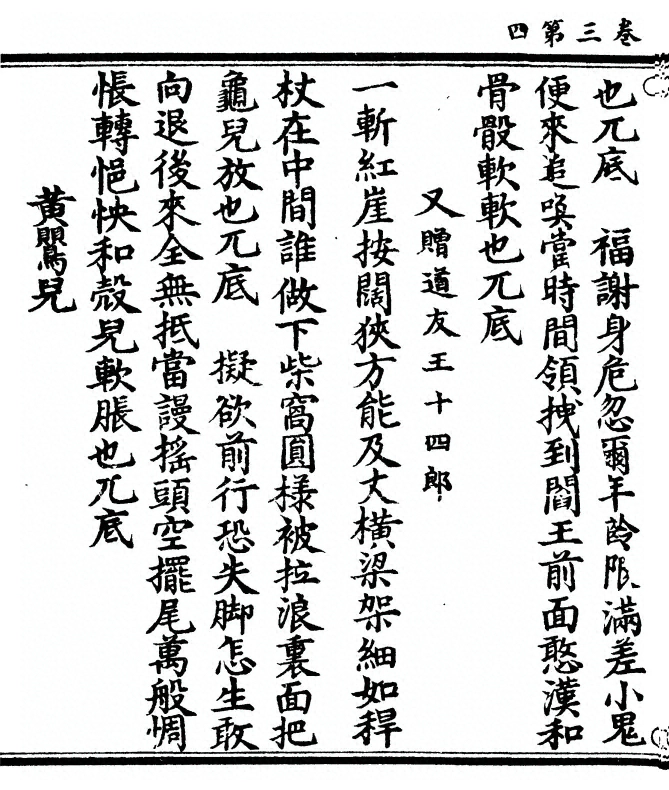 卷三第四
也兀底　福謝身危忽爾年齡限滿差小鬼
便來追喚當時間領拽到閻王前面憨漢和
骨骰軟軟也兀底
又贈道友王十四郎
一斬紅崖按闊狹方能及丈橫梁架細如稈
杖在中間誰做下柴窩圓樣被拉浪裏面把
龜兒放也兀底　擬欲前行恐失脚怎生敢
向退後來全無抵當謾搖頭空擺尾萬般惆
悵轉悒怏和殼兒軟脹也兀底
黃鸎兒